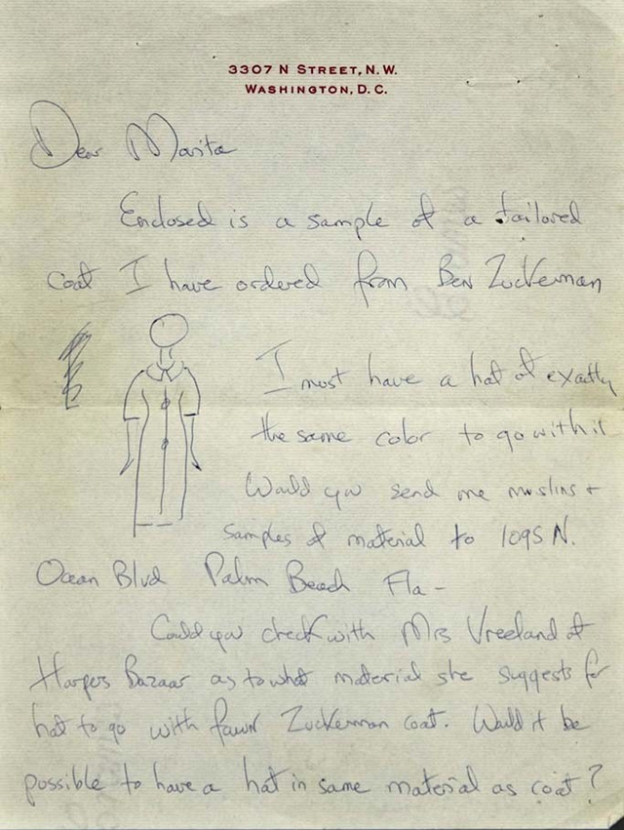 3307 N STREET, N.W.
WASHINGTON, D.C.
Dear Marita
Enclosed is a sample of a tailored
coat I have ordered from Ben Zuckerman
I must have a hat of exactly
the same color to go with it
Would you send me muslins +
samples of material to 1095 N.
Ocean Blvd Palm Beach Fla -
Could you check with Mrs Vreeland at
Harpers Bazaar as to what material she suggests for
hat to go with fawn Zuckerman coat. Would it be
possible to have a hat in same material as coat?